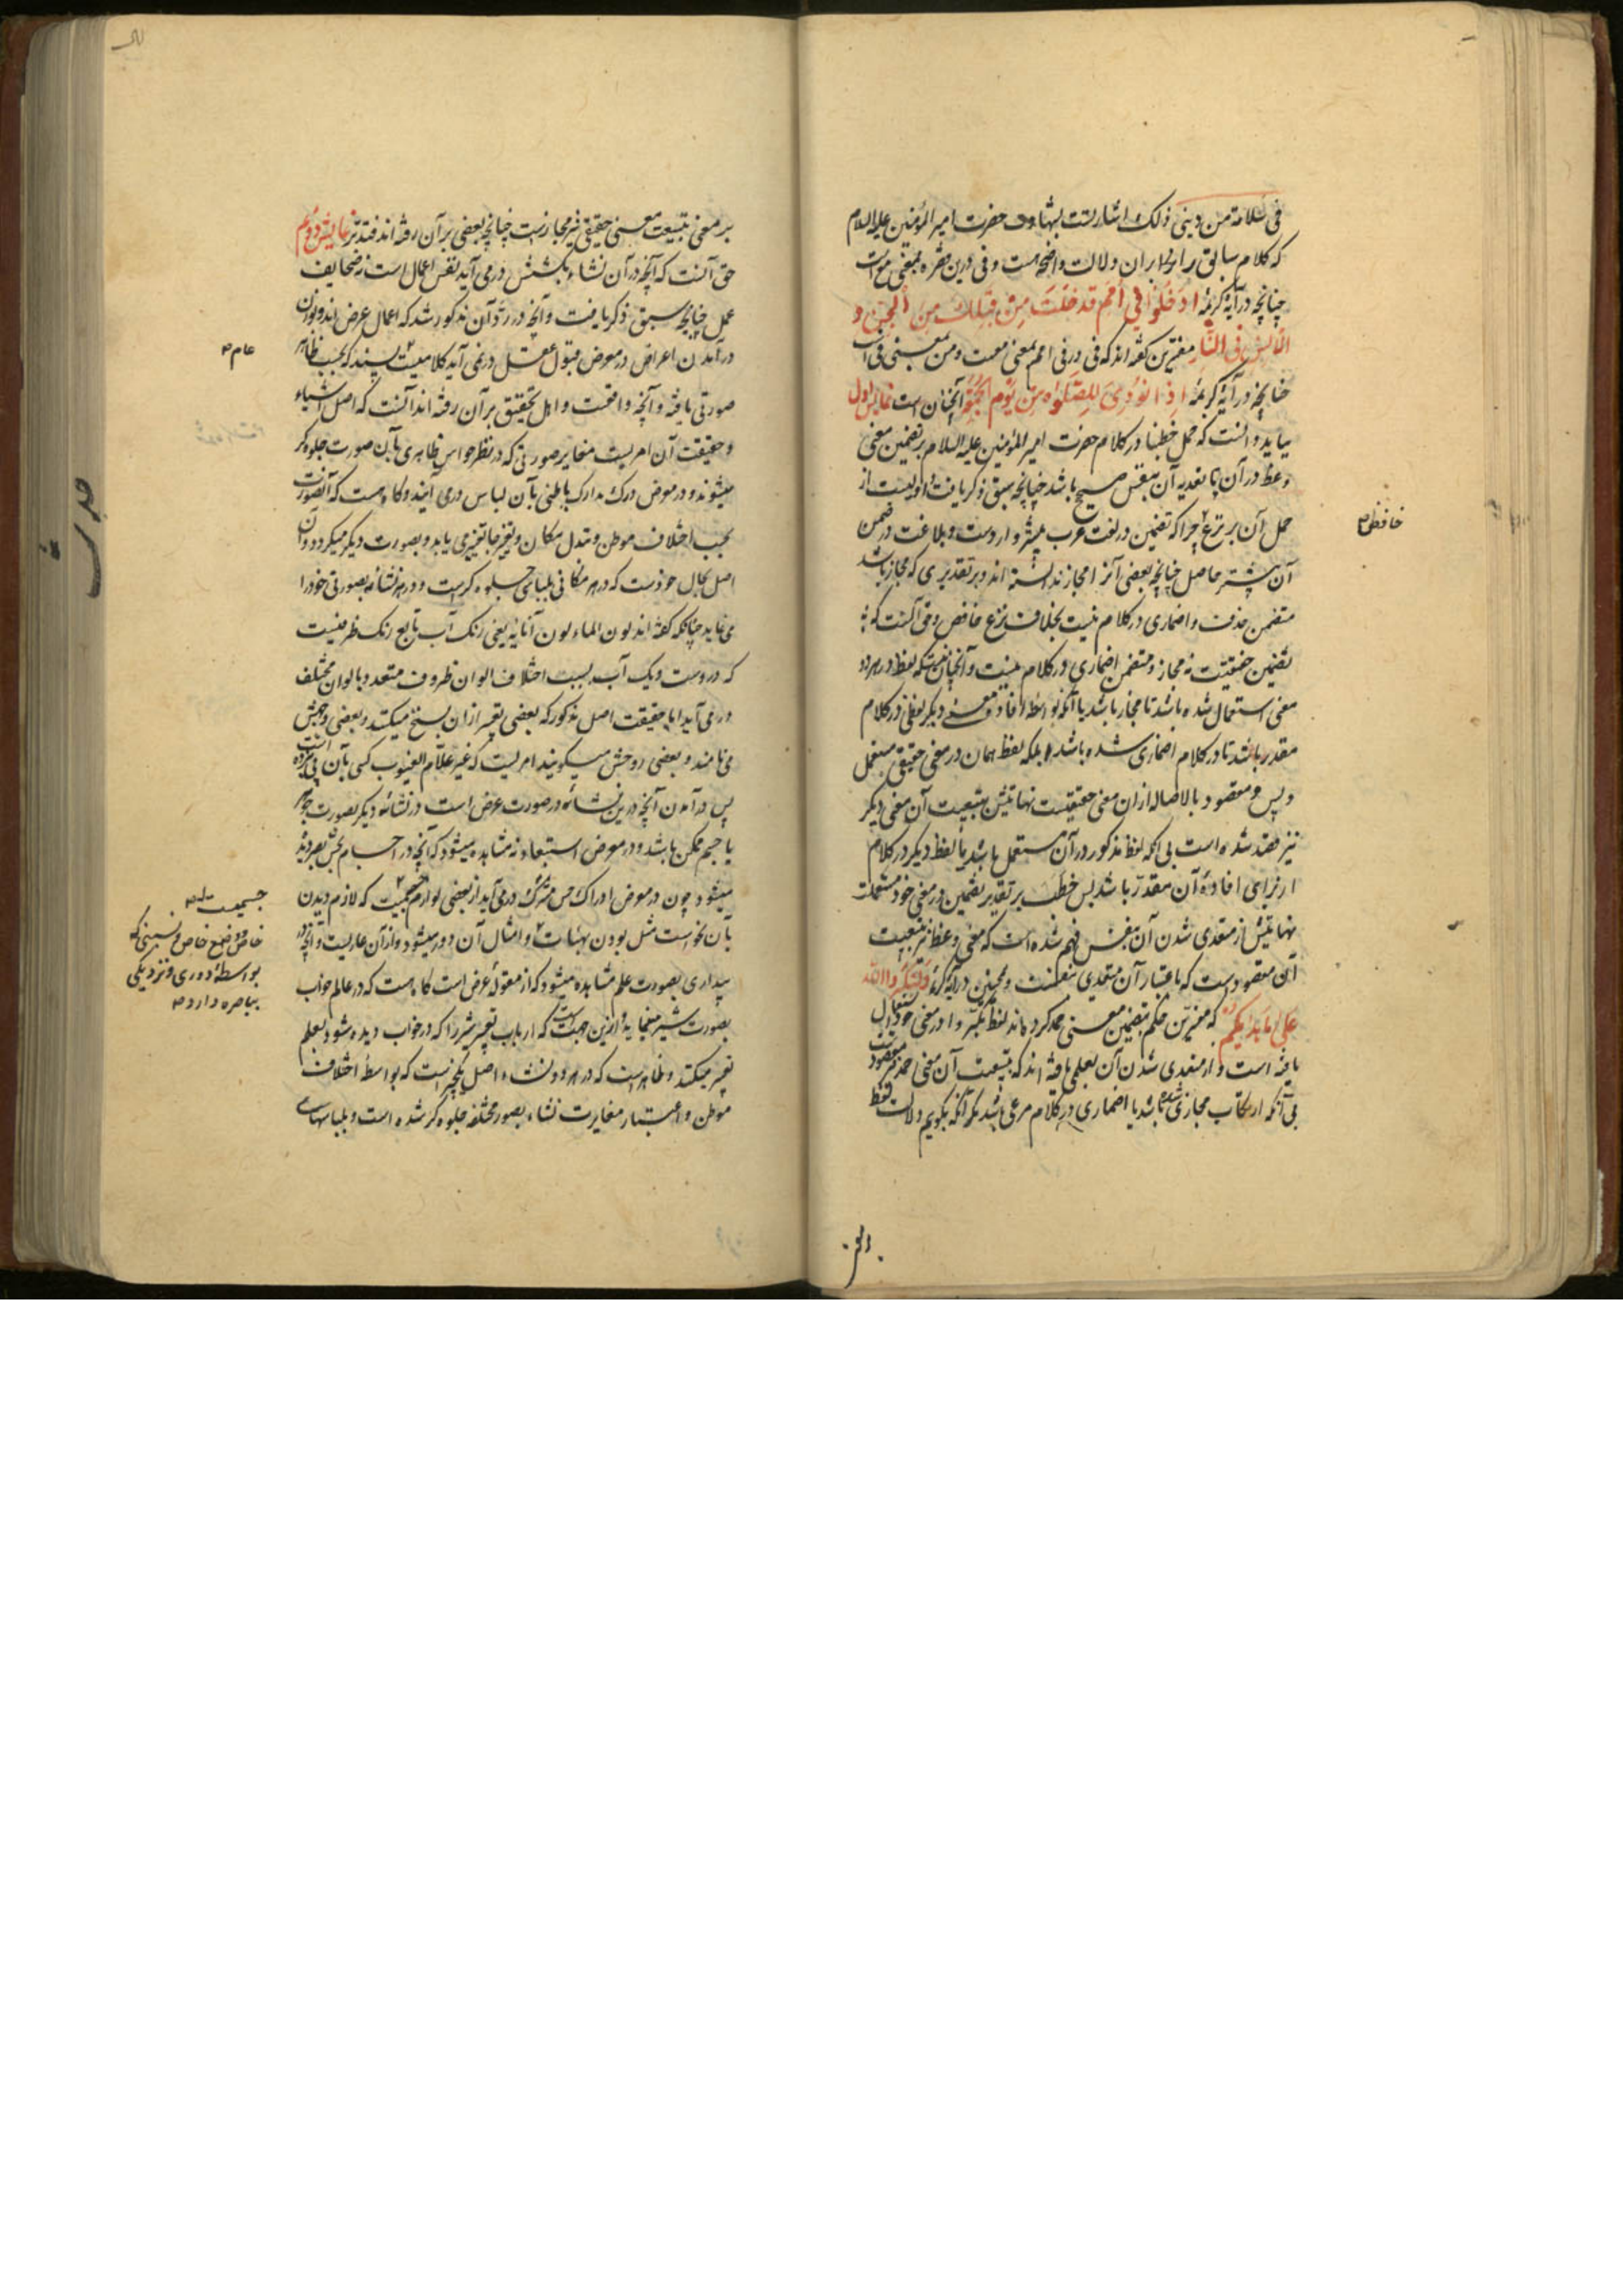 فی سلامة من دینی ذلک اشارتست بشهادت حضرت امیر المؤمنین علیه السلام
که کلام سابق بر او لا بر ان دلالت واضحه است و فی درین فقره بمعنی مع است
چنانچه در آیهٔ کریمهٔ ادْخُلُوا فِی أُمَمٍ قَدْ خَلَتْ مِنْ قَبْلِكُمْ مِنَ الْجِنِّ وَ
الْإِنْسِ فِی النَّارِ مفسرین گفته اند که فی در فی امم بمعنی معست و من بمعنی فی است
چنانچه در آیهٔ کریمهٔ إِذَا نُودِیَ لِلصَّلوٰةِ مِنْ یَوْمِ الْجُمُعَةِ آنچنان است نمایش اول
بباید دانست که حمل خطبنا در کلام حضرت امیر المؤمنین علیه السلام بر تضمین معنی
وعظ در آن تا تعدیه آن بنفس صحیح باشد چنانچه سبق ذکر یافت اولیست از
حمل آن بر نزع چرا که تضمین در لغت عرب بیشتر وارد است و بلاغت در ضمن
خافض
آن بیشتر حاصل چنانچه بعضی آنرا مجاز ندانسته اند و بر تقدیری که مجاز باشد
متضمن حذف و اضماری در کلام نیست بخلاف نزع خافض و حق آنست که
تضمین حقیقتست نه مجاز و متضمن اضماری در کلام نیست و آنچنانست که لفظ در هر دو
معنی استعمال شده باشد تا مجاز باشد یا آنکه بواسطهٔ افادهٔ معنی دیگر لفظی در کلام
مقدر باشد تا در کلام اضماری شده باشد بلکه لفظ همان در معنی حقیقی مستعمل
و بس و مقصود بالاصاله ازان معنی حقیقیست نهایتش بتبعیت آن معنی دیگر
نیز قصد شده است بی آنکه لفظ مذکور در آن مستعمل باشد یا لفظ دیگر در کلام
از برای افادهٔ آن مقدر باشد پس خطب بر تقدیر تضمین در معنی خود مستعملست
نهایتش از متعدی شدن آن بنفس فهم شده است که معنی وعظ نیز بتبعیت
آن مقصود است که باعتبار آن متعدی بنفسست و همچنین در آیهٔ کریمهٔ وَلِتُكَبِّرُوا اللّٰهَ
عَلیٰ مَا هَدٰیكُمْ که مفسرین حکم بتضمین معنی حمد کرده اند لفظ تکبروا در معنی خود استعمال
یافته است و از متعدی شدن آن بعلی یافته اند که بتبعیت آن معنی حمد نیز مقصود است
بی آنکه ارتکاب مجازی شده باشد یا اضماری در کلام مرعی باشد مگر آنکه بگویم دلالت لفظ
بر معنی بتبعیت معنی حقیقی نیز مجازست چنانچه بعضی بر آن رفته اند فتدبر نمایش دوم
حق آنست که آنچه در آن نشاء بکشش در می آید نفس اعمال است نه صحایف
عمل چنانچه سبق ذکر یافت و آنچه در رد آن مذکور شد که اعمال عرض اند و بوزن
در آمدن اعراض در معرض قبول عقل در نمی آید کلامیست پسند که بحسب ظاهر
عام
صورتی یافته و آنچه واقعست و اهل تحقیق بر آن رفته اند آنست که اصل اشیاء
و حقیقت آن امریست مغایر صورتی که در نظر حواس ظاهری بآن صورت جلوه گر
میشوند و در معرض درک مدارک باطنی بآن لباس در می آیند و گاه هست که آنصورت
بحسب اختلاف موطن و تبدل مکان و تغیر جا تغییر می یابد و بصورت دیگر میگردد و آن
اصل بحال خودست که در هر مکانی بلباسی جلوه گرست و در هر نشاه بصورتی خود را
می نماید چنانکه گفته اند لون الماء لون انائه یعنی رنگ آب تابع رنگ ظرفیست
که دروست و یک آب بسبب اختلاف الوان ظروف متعدد بالوان مختلف
در می آید اما حقیقت اصل مذکور که بعضی تعبیر ازان بسنخ میکنند و بعضی وجهش
می نامند و بعضی روحش میگویند امریست که غیر علّام الغیوب کسی بآن پی نبرده است
پس در آمدن آنچه درین نشاه در صورت عرض است در نشاه دیگر بصورت جوهر
یا جسم ممکن باشد و در معرض استبعاد نه مشاهده میشود که آنچه در اجسام بحس بصر دیده
میشود چون در معرض ادراک حس مشترک در می آید از بعضی لوازم جسمیت که لازم دیدن
جسمیت
خاص و وضع خاص و نسبتی که
بواسطهٔ دوری و نزدیکی
بباصره دارد
بآن حواست مثل بودن بهیئات و امثال آن دور میشود و از آن عاریست و آنچه در
بیداری بصورت علم مشاهده میشود که از مقولهٔ عرض است گاه هست که در عالم خواب
بصورت شیر مینماید و ازین جهت است که ارباب تعبیر شیر را که در خواب دیده شود بعلم
تعبیر میکنند و ظاهرست که در هر دو نشاء اصل یکچیزست که بواسطهٔ اختلاف
موطن و اعتبار مغایرت نشاء بصور مختلفه جلوه گر شده است و بلباسهای